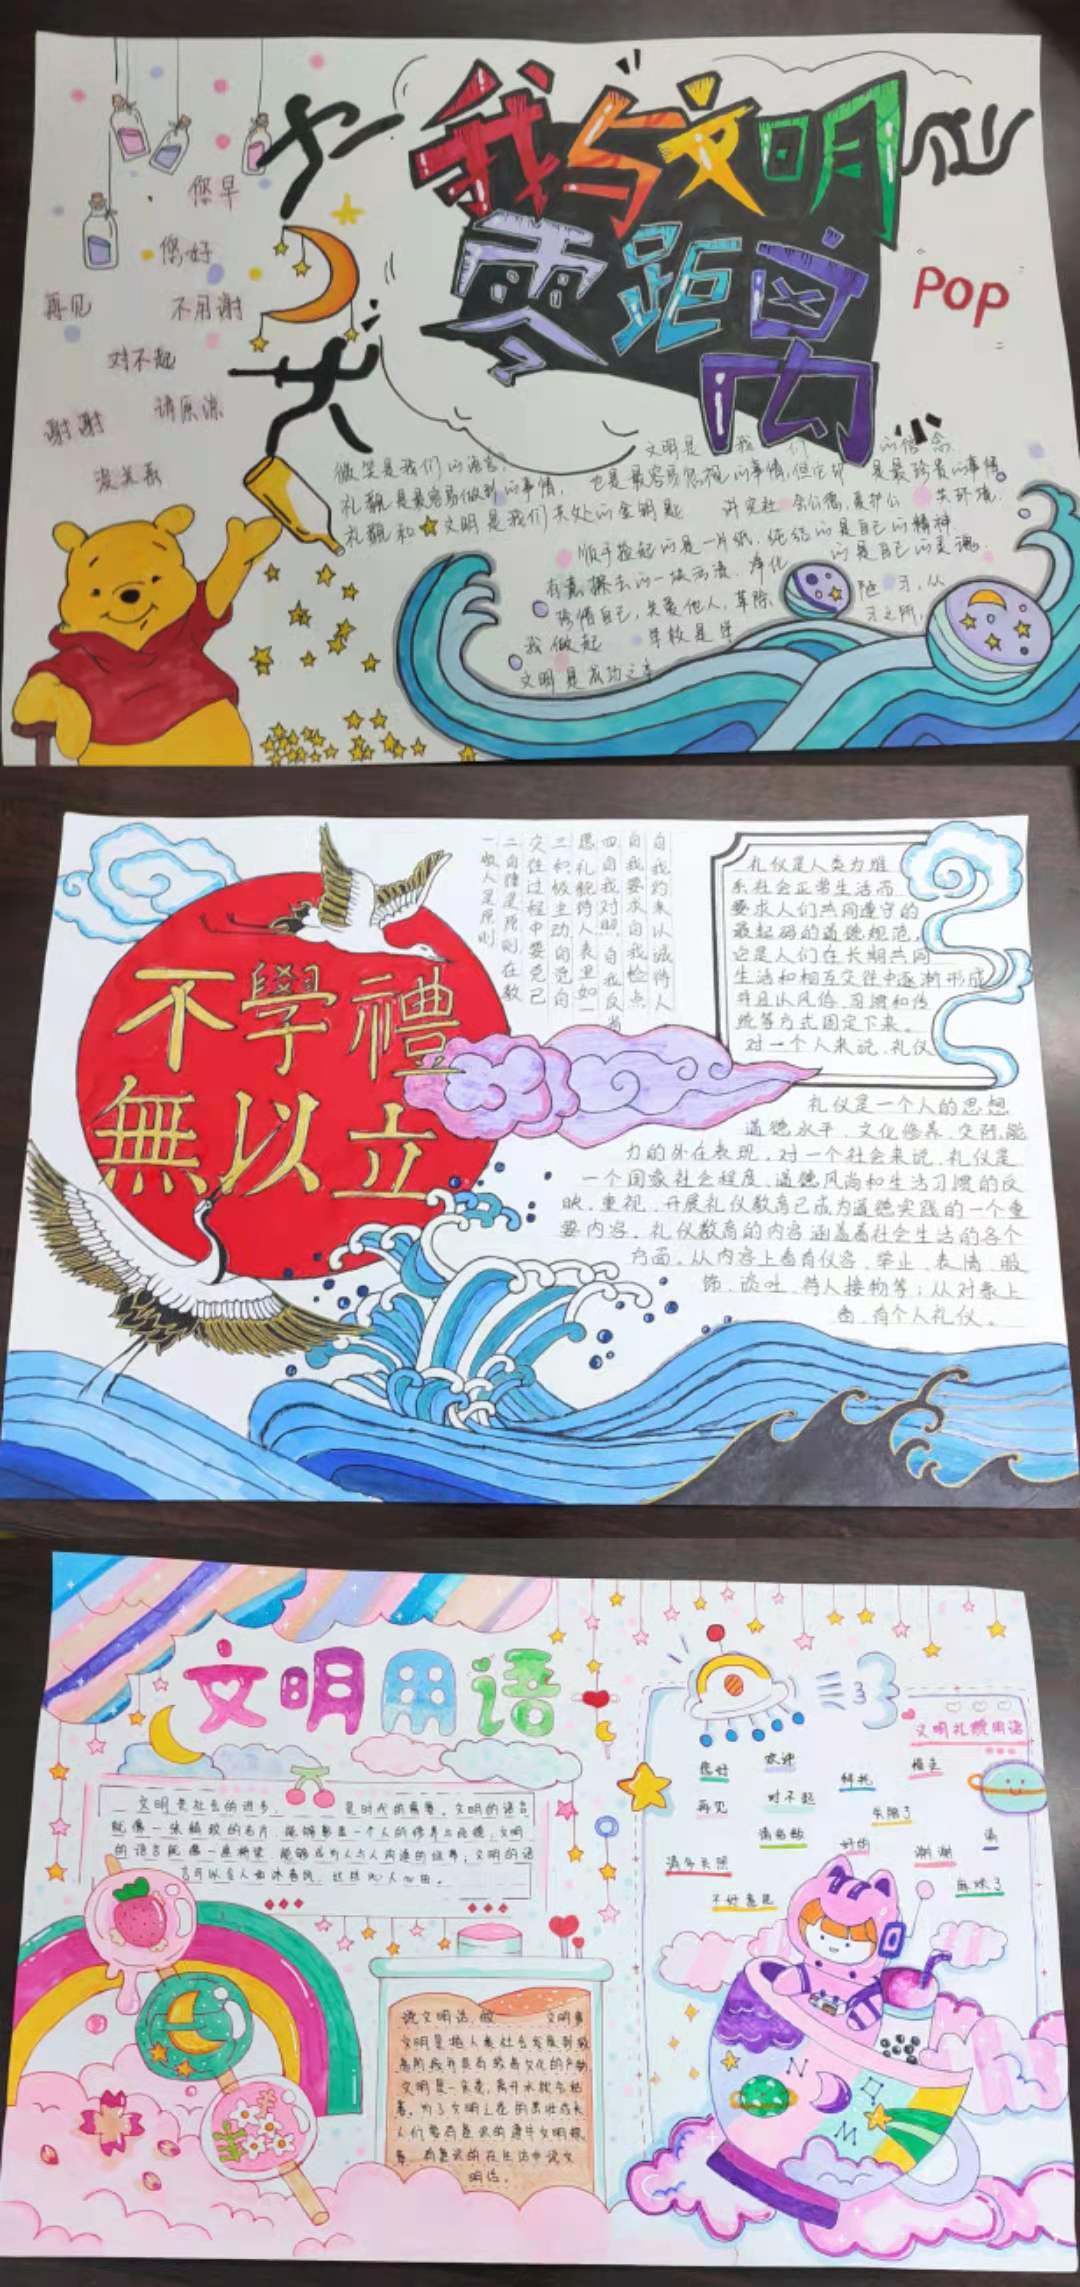 我与文明
零距离
POP
您早
您好
再见
不用谢
对不起
谢谢
请原谅
没关系
微笑是我们的语言,
文明是我们的信念.
礼貌是最容易做到的事情, 也是最容易忽视的事情,但它却是最珍贵的事情
礼貌和文明是我们共处的金钥匙 讲究社会公德,爱护公共环境.
顺手捡起的是一片纸,纯洁的是自己的精神
有意擦去的一块污渍,净化的是自己的灵魂.
珍惜自己,关爱他人,革除陋习,从
我做起
文明是成功之
不學禮
無以立
自我约束以诚待人
自我要求自我检点
四自我对照自我反省
愚礼貌待人表里如一
三积极主动自觉自
交往过程中要克己
二自律是原则在教
一敬人是原则
礼仪是人类为维
系社会正常生活而
要求人们共同遵守的
最起码的道德规范,
它是人们在长期共同
生活和相互交往中逐渐形成
并且以风俗、习惯和传
统等方式固定下来。
对一个人来说,礼仪
礼仪是一个人的思想
道德水平、文化修养、交际能
力的外在表现,对一个社会来说,礼仪是
一个国家社会程度、道德风尚和生活习惯的反
映,重视、开展礼仪教育已成为道德实践的一个重
要内容。礼仪教育的内容涵盖着社会生活的各个
方面。从内容上看有仪容、举止、表情、服
饰、谈吐、待人接物等;从对象上
看,有个人礼仪。
文明用语
文明是社会的进步, 是时代的需要。文明的语言
就像一张精致的名片,能够彰显一个人的修养与品德;文明
的语言就像一座桥梁,能够成为人与人沟通的纽带;文明的语
言可以令人如沐春风,
说文明话,做文明事
文明是指人类社会发展到较
高阶段并具有较高文化的产物
文明是一条鱼,离开水就会枯
萎。为了文明之花的茁壮成长
人们要有意识的
有意识的在生活中说文
明话。
文明礼貌用语
您好
欢迎
拜托
再见
对不起
失陪了
请自便
好的
谢谢
请
请多关照
麻烦了
不好意思